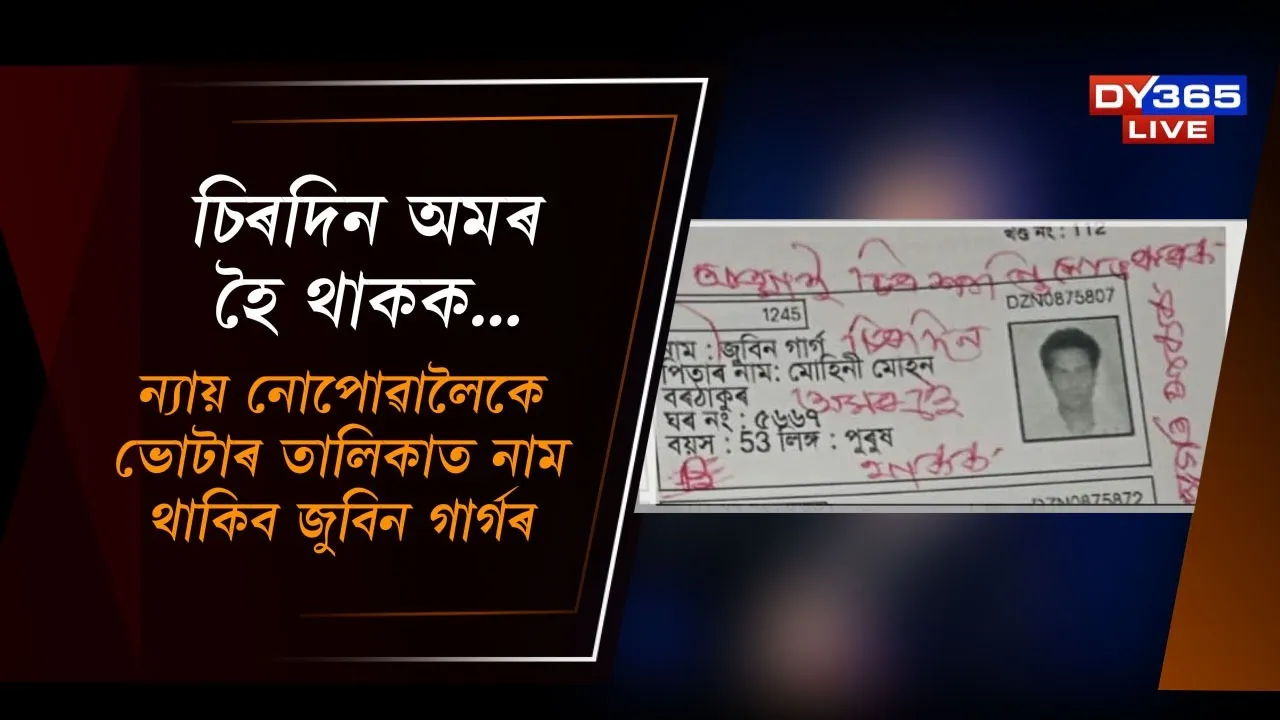 চিৰদিন অমৰ
হৈ থাকক...
ন্যায় নোপোৱালৈকে
ভোটাৰ তালিকাত নাম
থাকিব জুবিন গাৰ্গৰ
DY365
LIVE
খণ্ড নং : 112
আত্মাই চিৰ শান্তি লাভ কৰক
1245
DZN0875807
নাম : জুবিন গাৰ্গ
চিৰদিন
পিতাৰ নাম: মোহিনী মোহন
বৰঠাকুৰ
অমৰ হৈ
ঘৰ নং : ৫৬৬৭
বয়স : 53 লিঙ্গ : পুৰুষ
থাকক
DZN0875872